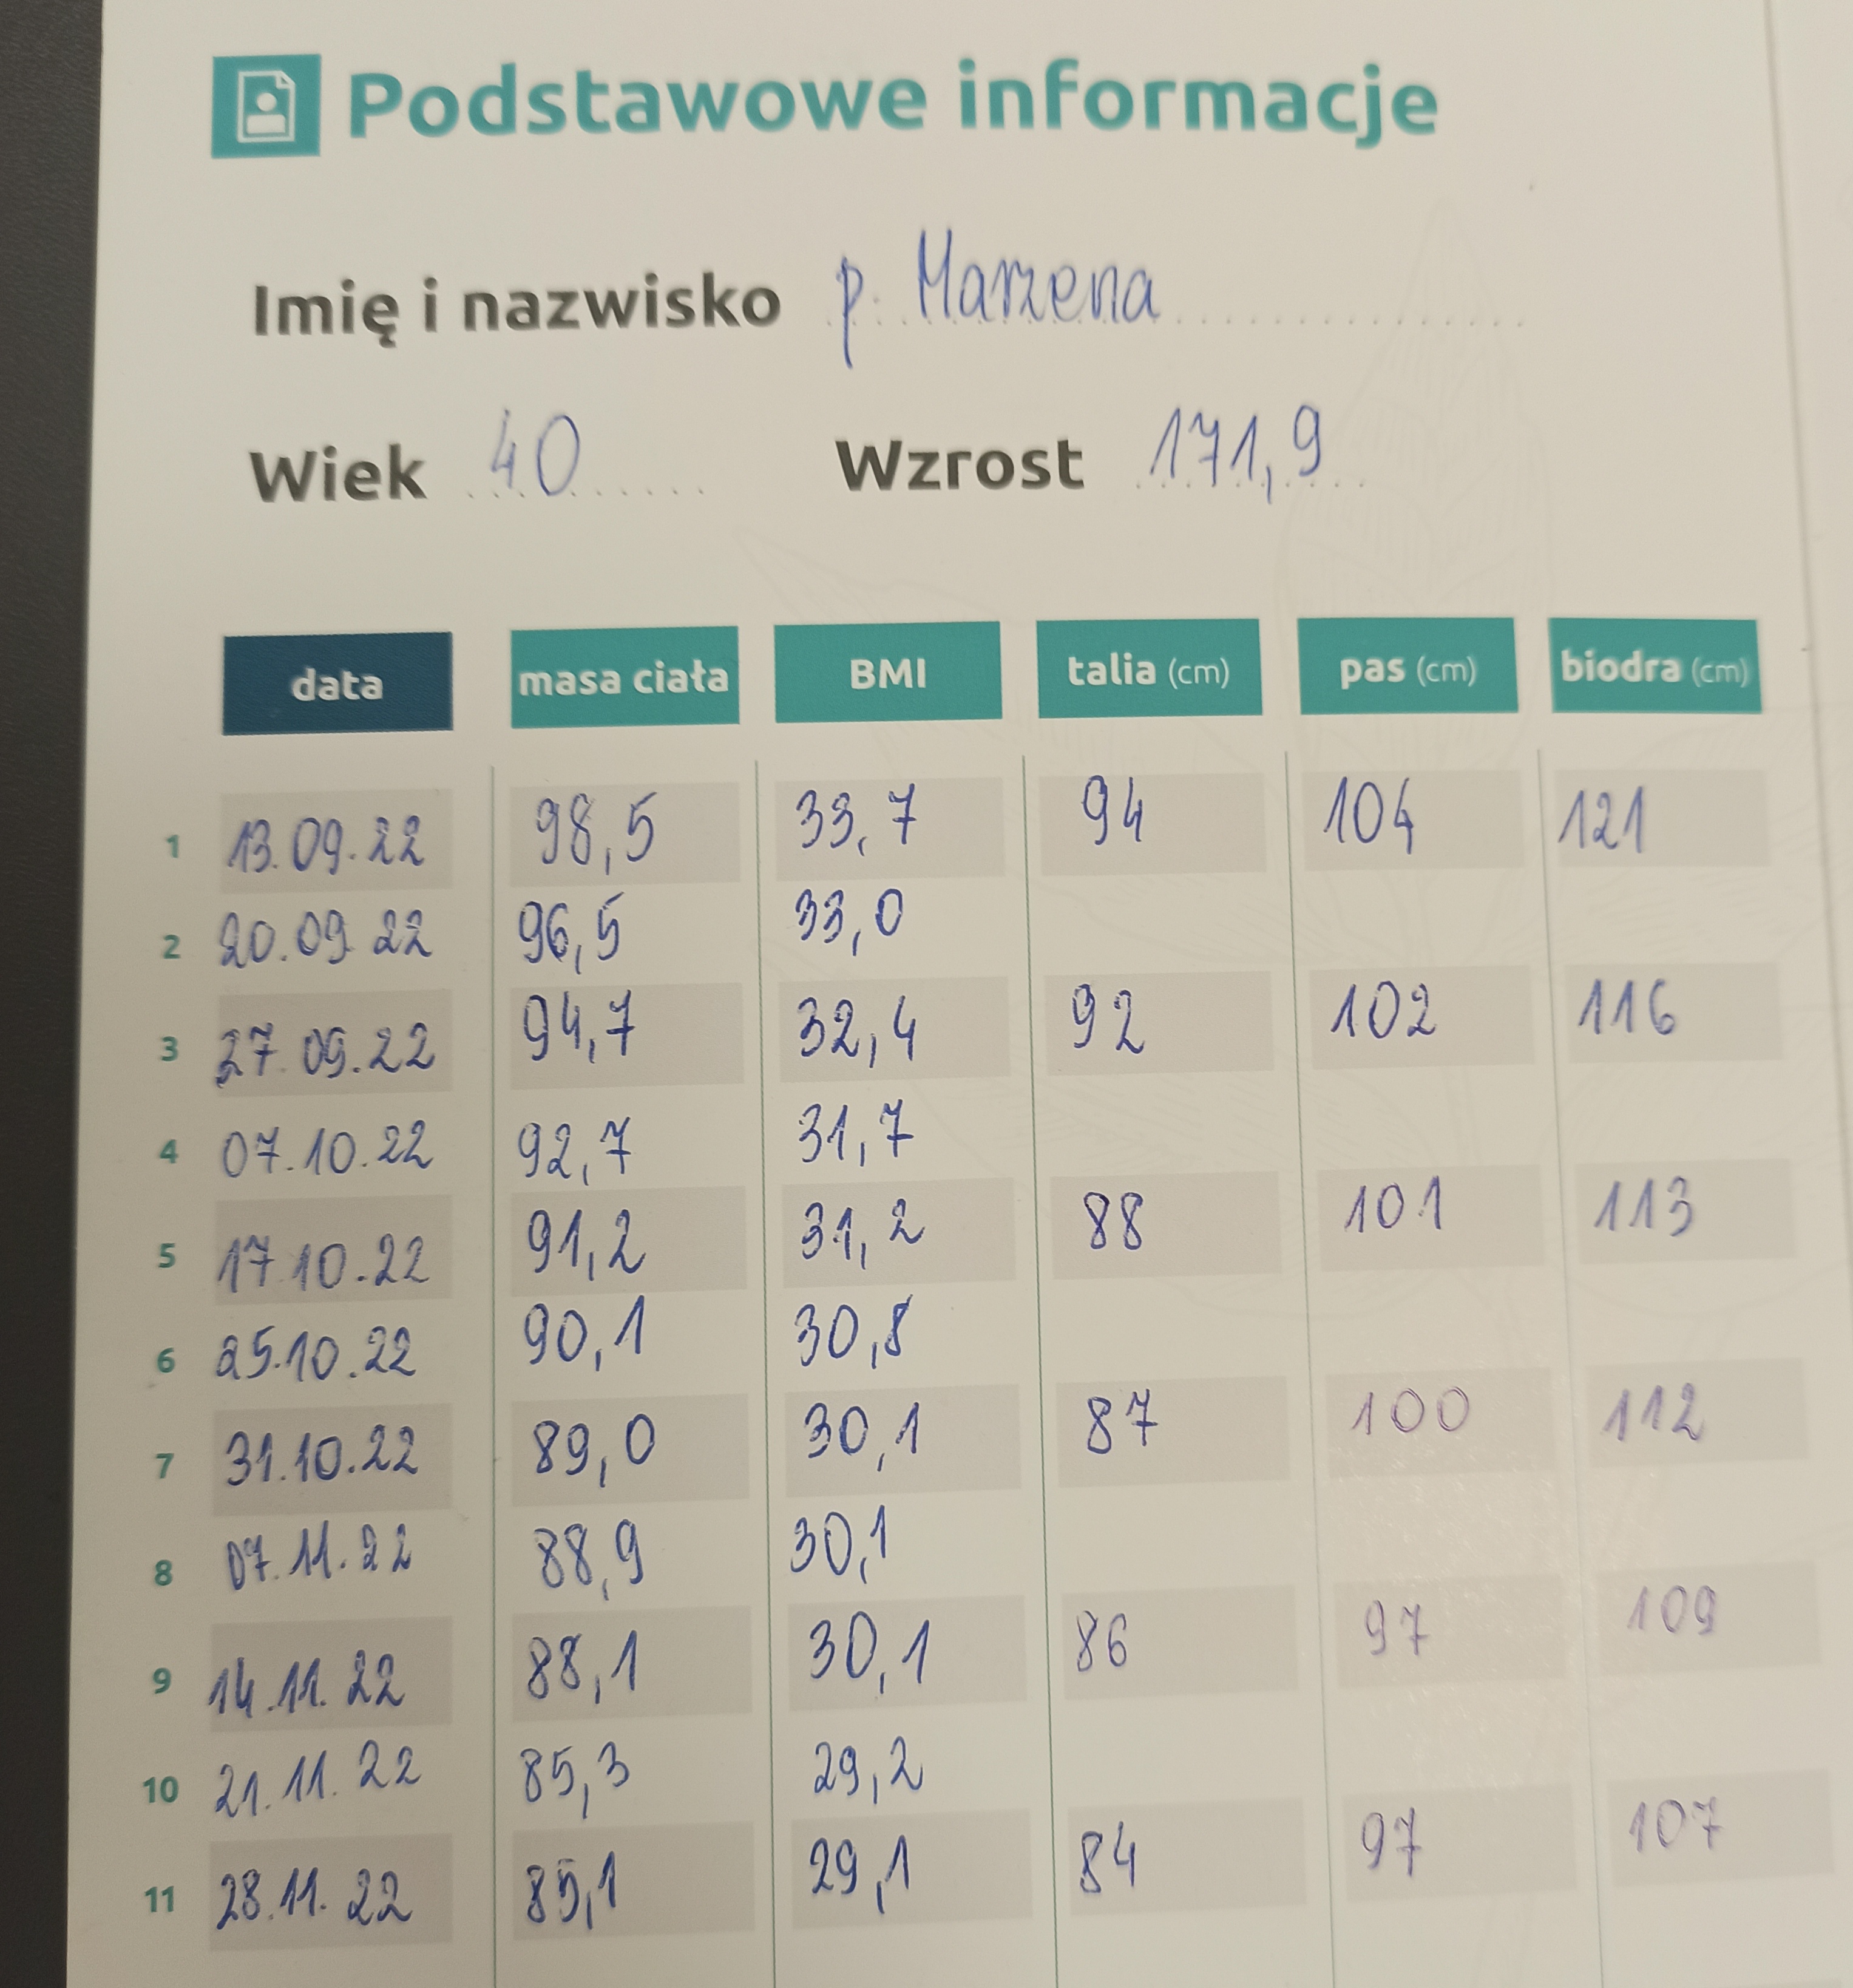 Podstawowe informacje
Imię i nazwisko p. Marzena
Wiek 40 Wzrost 171,9
data masa ciała BMI talia (cm) pas (cm) biodra (cm)
1 13.09.22 98,5 33,7 94 104 121
2 20.09.22 96,5 33,0
3 27.09.22 94,7 32,4 92 102 116
4 07.10.22 92,7 31,7
5 17.10.22 91,2 31,2 88 101 113
6 25.10.22 90,1 30,8
7 31.10.22 89,0 30,1 87 100 112
8 07.11.22 88,9 30,1
9 14.11.22 88,1 30,1 86 97 109
10 21.11.22 85,3 29,2
11 28.11.22 85,1 29,1 84 97 107